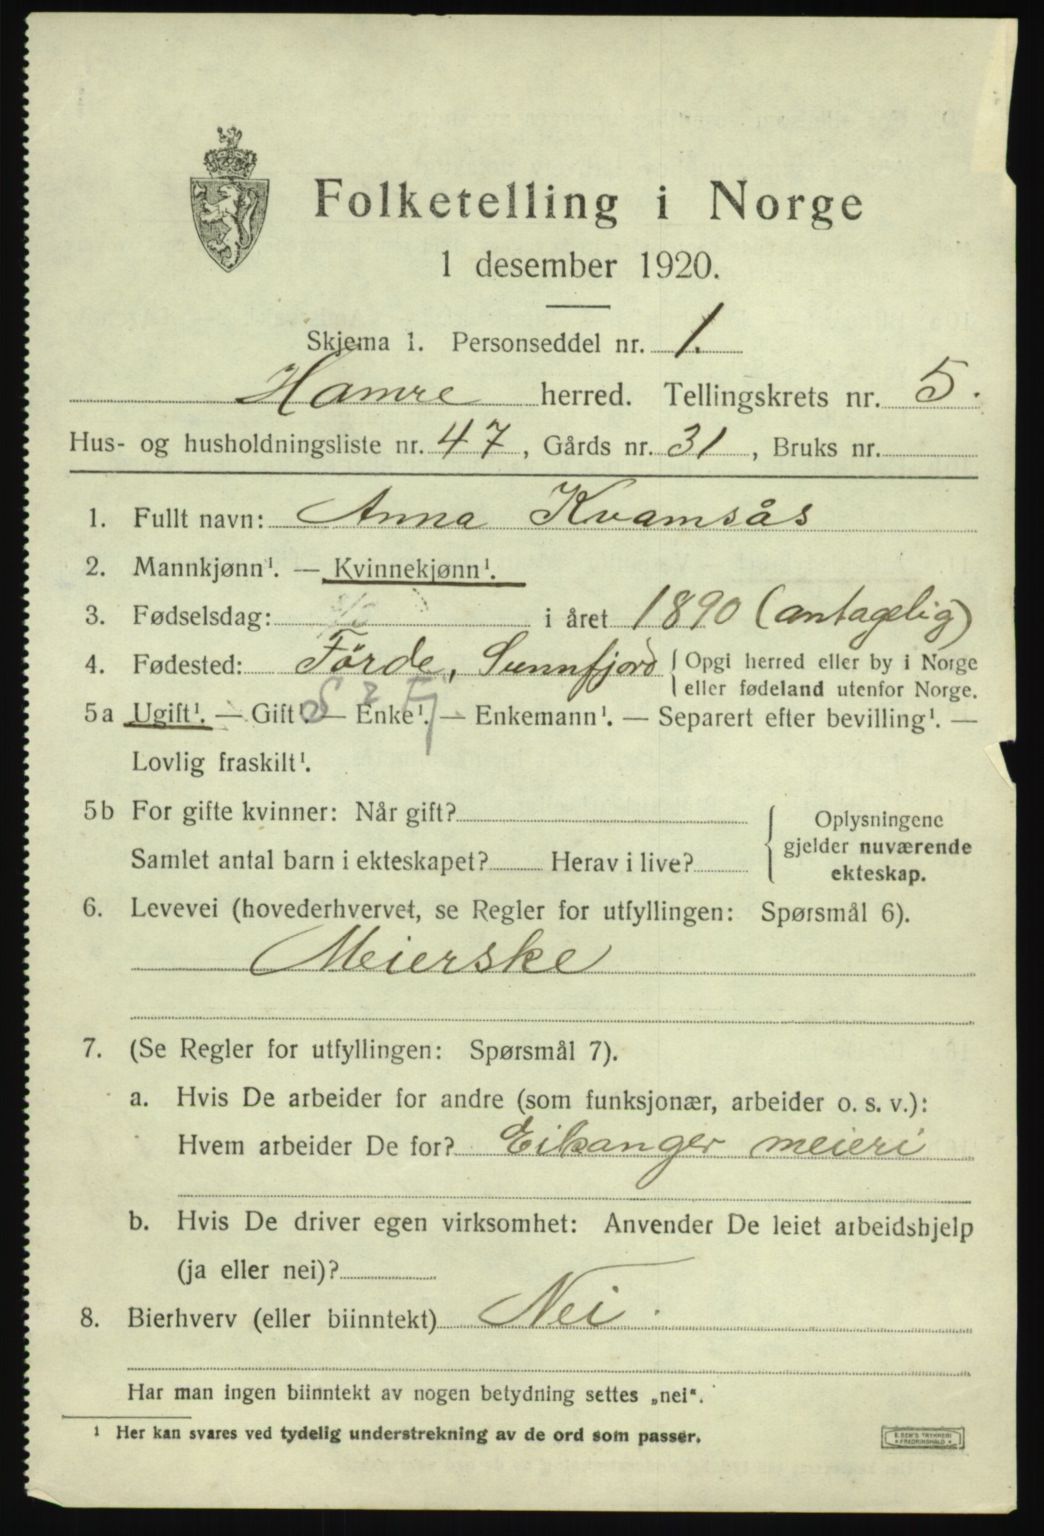 Folketelling i Norge
1 desember 1920.
Skjema 1. Personseddel nr. 1.
Hamre herred. Tellingskrets nr. 5.
Hus- og husholdningsliste nr. 47, Gårds nr. 31, Bruks nr.
1. Fullt navn: Anna Kvamsås
2. Mannkjønn¹. — Kvinnekjønn¹.
3. Fødselsdag: i året 1890 (antagelig)
4. Fødested: Förde, Sunnfjord { Opgi herred eller by i Norge
eller fødeland utenfor Norge.
5a Ugift¹. — Gift¹. — Enke¹. — Enkemann¹. — Separert efter bevilling¹. —
Lovlig fraskilt¹.
5b For gifte kvinner: Når gift?
Samlet antal barn i ekteskapet? Herav i live?
Oplysningene
gjelder nuværende
ekteskap.
6. Levevei (hovederhvervet, se Regler for utfyllingen: Spørsmål 6).
Meierske
7. (Se Regler for utfyllingen: Spørsmål 7).
a. Hvis De arbeider for andre (som funksjonær, arbeider o. s. v.):
Hvem arbeider De for? Eikanger meieri
b. Hvis De driver egen virksomhet: Anvender De leiet arbeidshjelp
(ja eller nei)?
8. Bierhverv (eller biinntekt) Nei.
Har man ingen biinntekt av nogen betydning settes „nei“.
¹ Her kan svares ved tydelig understrekning av de ord som passer.